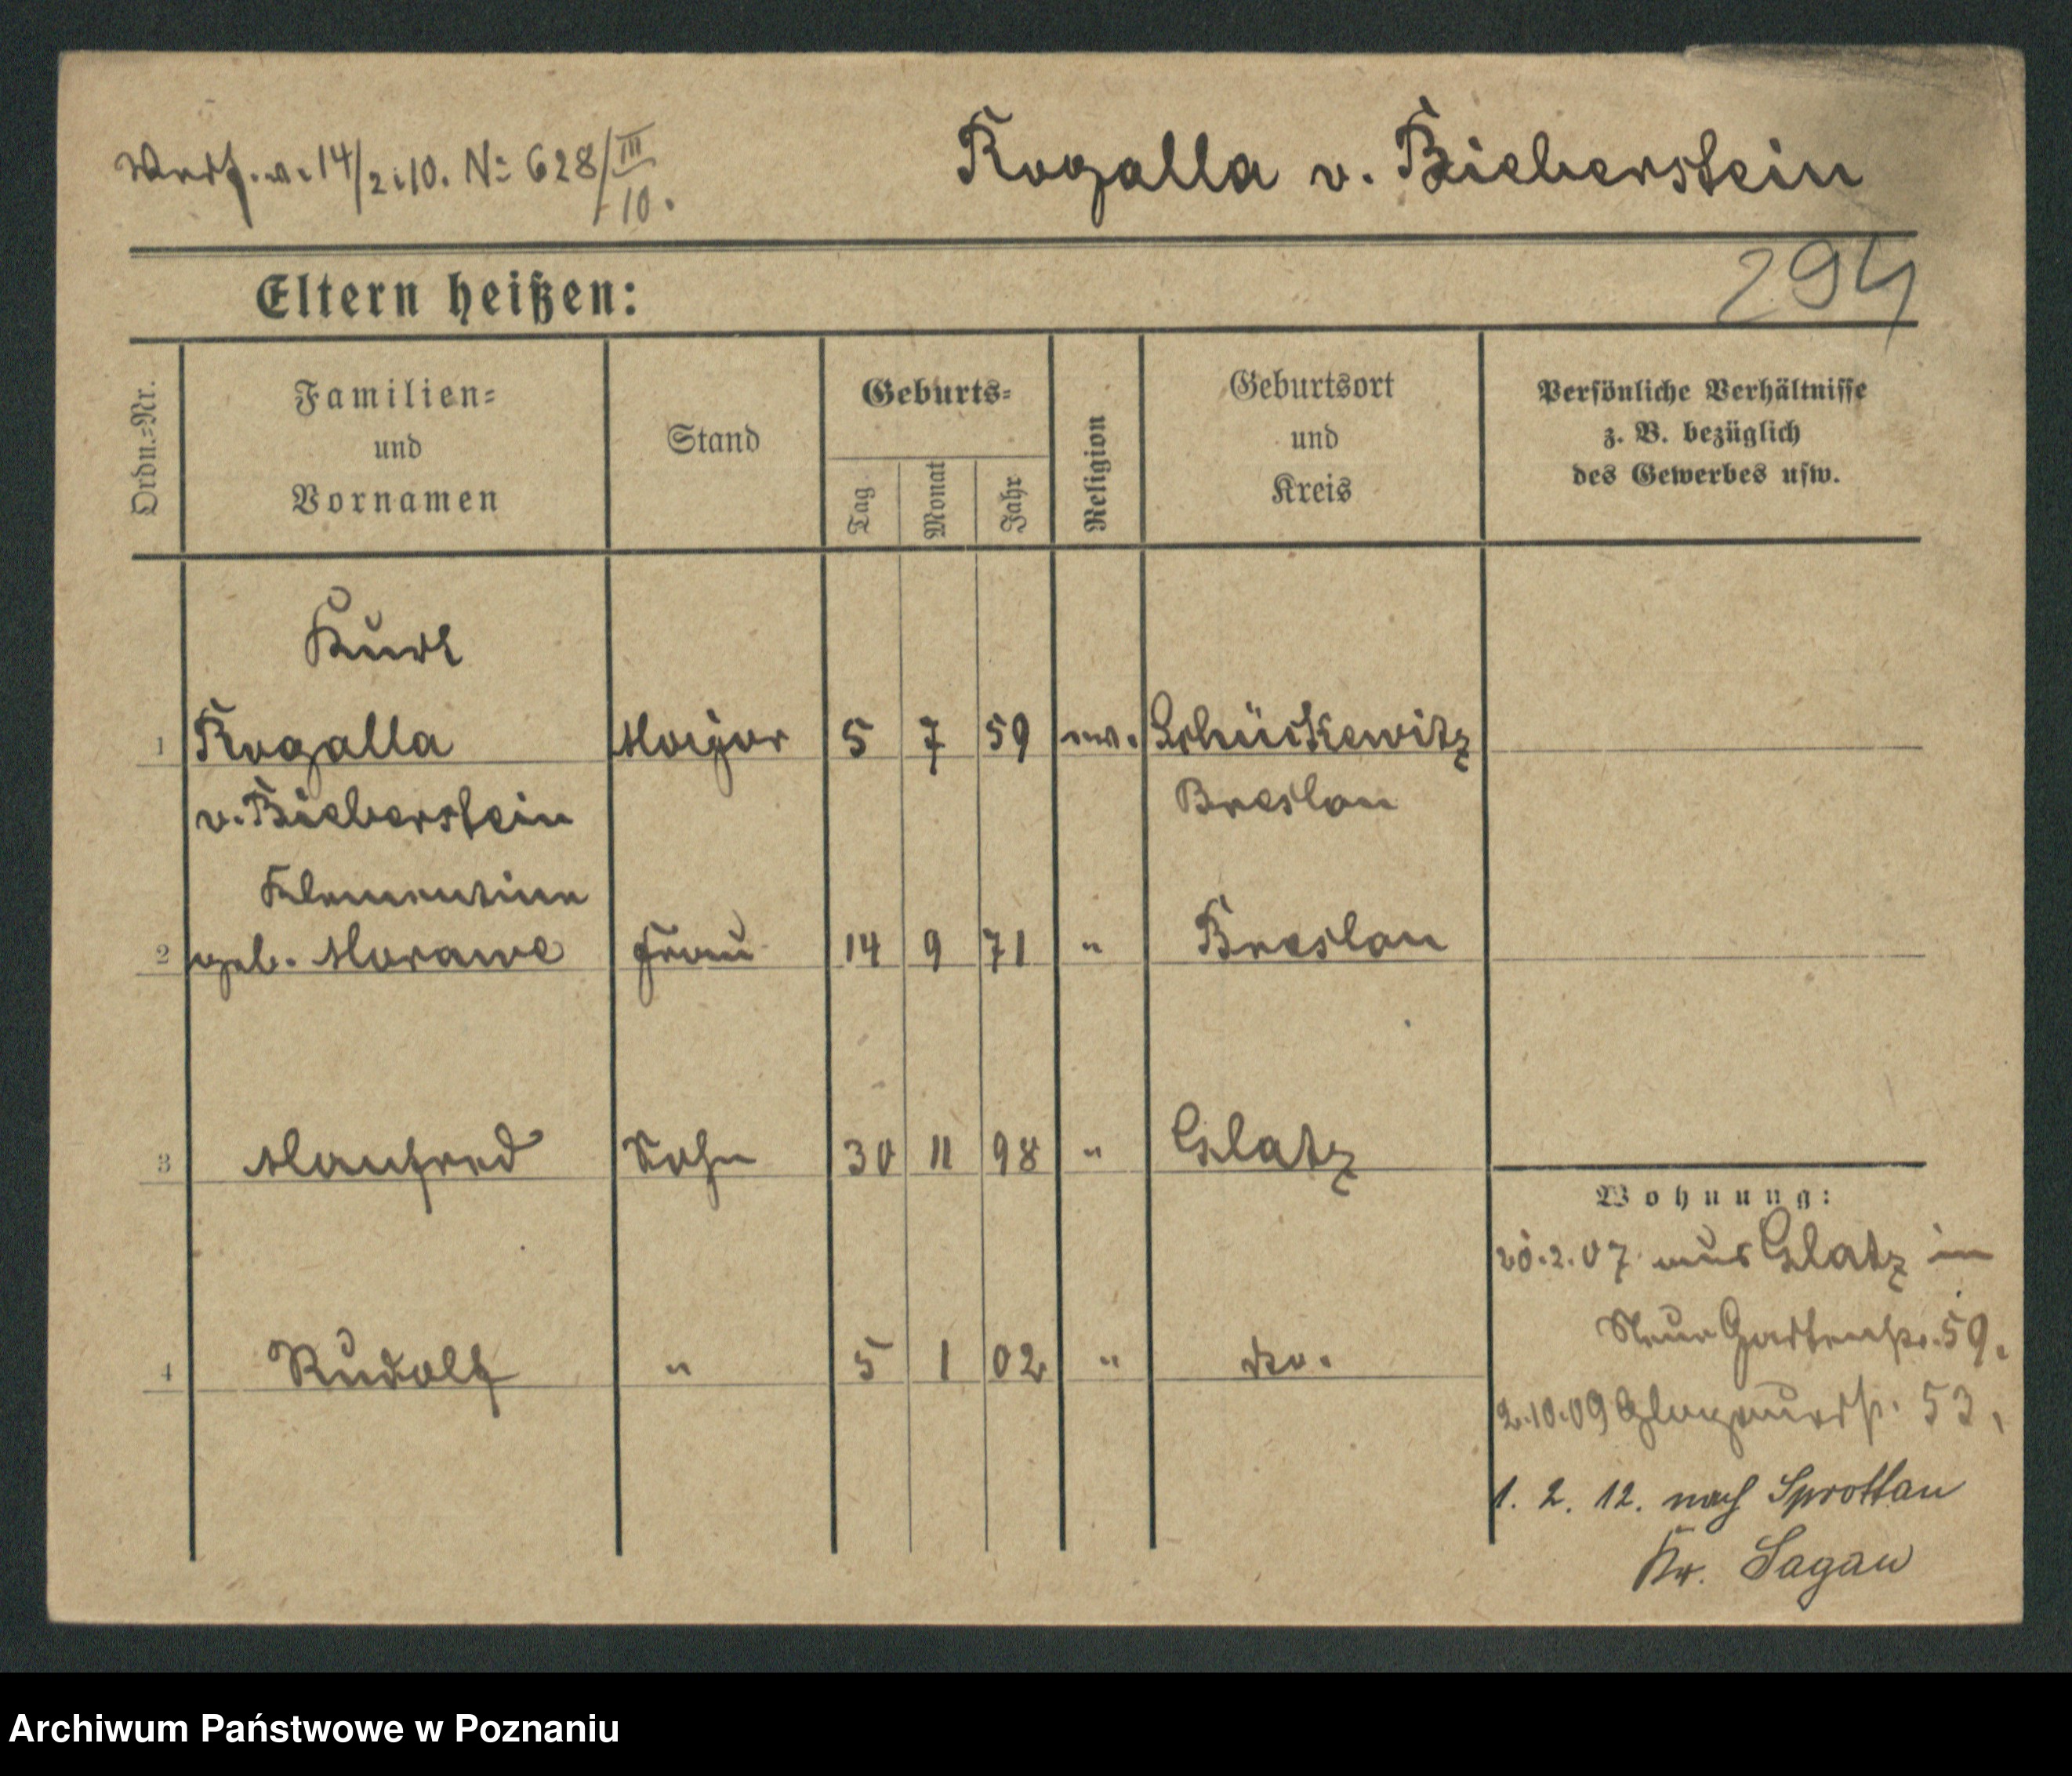 Verf. v. 14/2.10. No 628/III/10.
Rogalla v. Bieberstein
Eltern heißen:
294
Ordn.=Nr.
Familien=
und
Vornamen
Stand
Geburts=
Tag
Monat
Jahr
Religion
Geburtsort
und
Kreis
Persönliche Verhältnisse
z. B. bezüglich
des Gewerbes usw.
Kurt
1 Rogalla Major 5 7 59 ev. Schückewitz
v. Bieberstein Breslau
Klementine
2 geb. Morawe Frau 14 9 71 " Breslau
3 Manfred Sohn 30 11 98 " Glatz
Wohnung:
.2.07 aus Glatz in
Neue Gartenstr. 59.
4 Rudolf " 5 1 02 " do.
2.10.09 Glogauerstr. 53.
1. 2. 12. nach Sprottau
Kr. Sagan
Archiwum Państwowe w Poznaniu